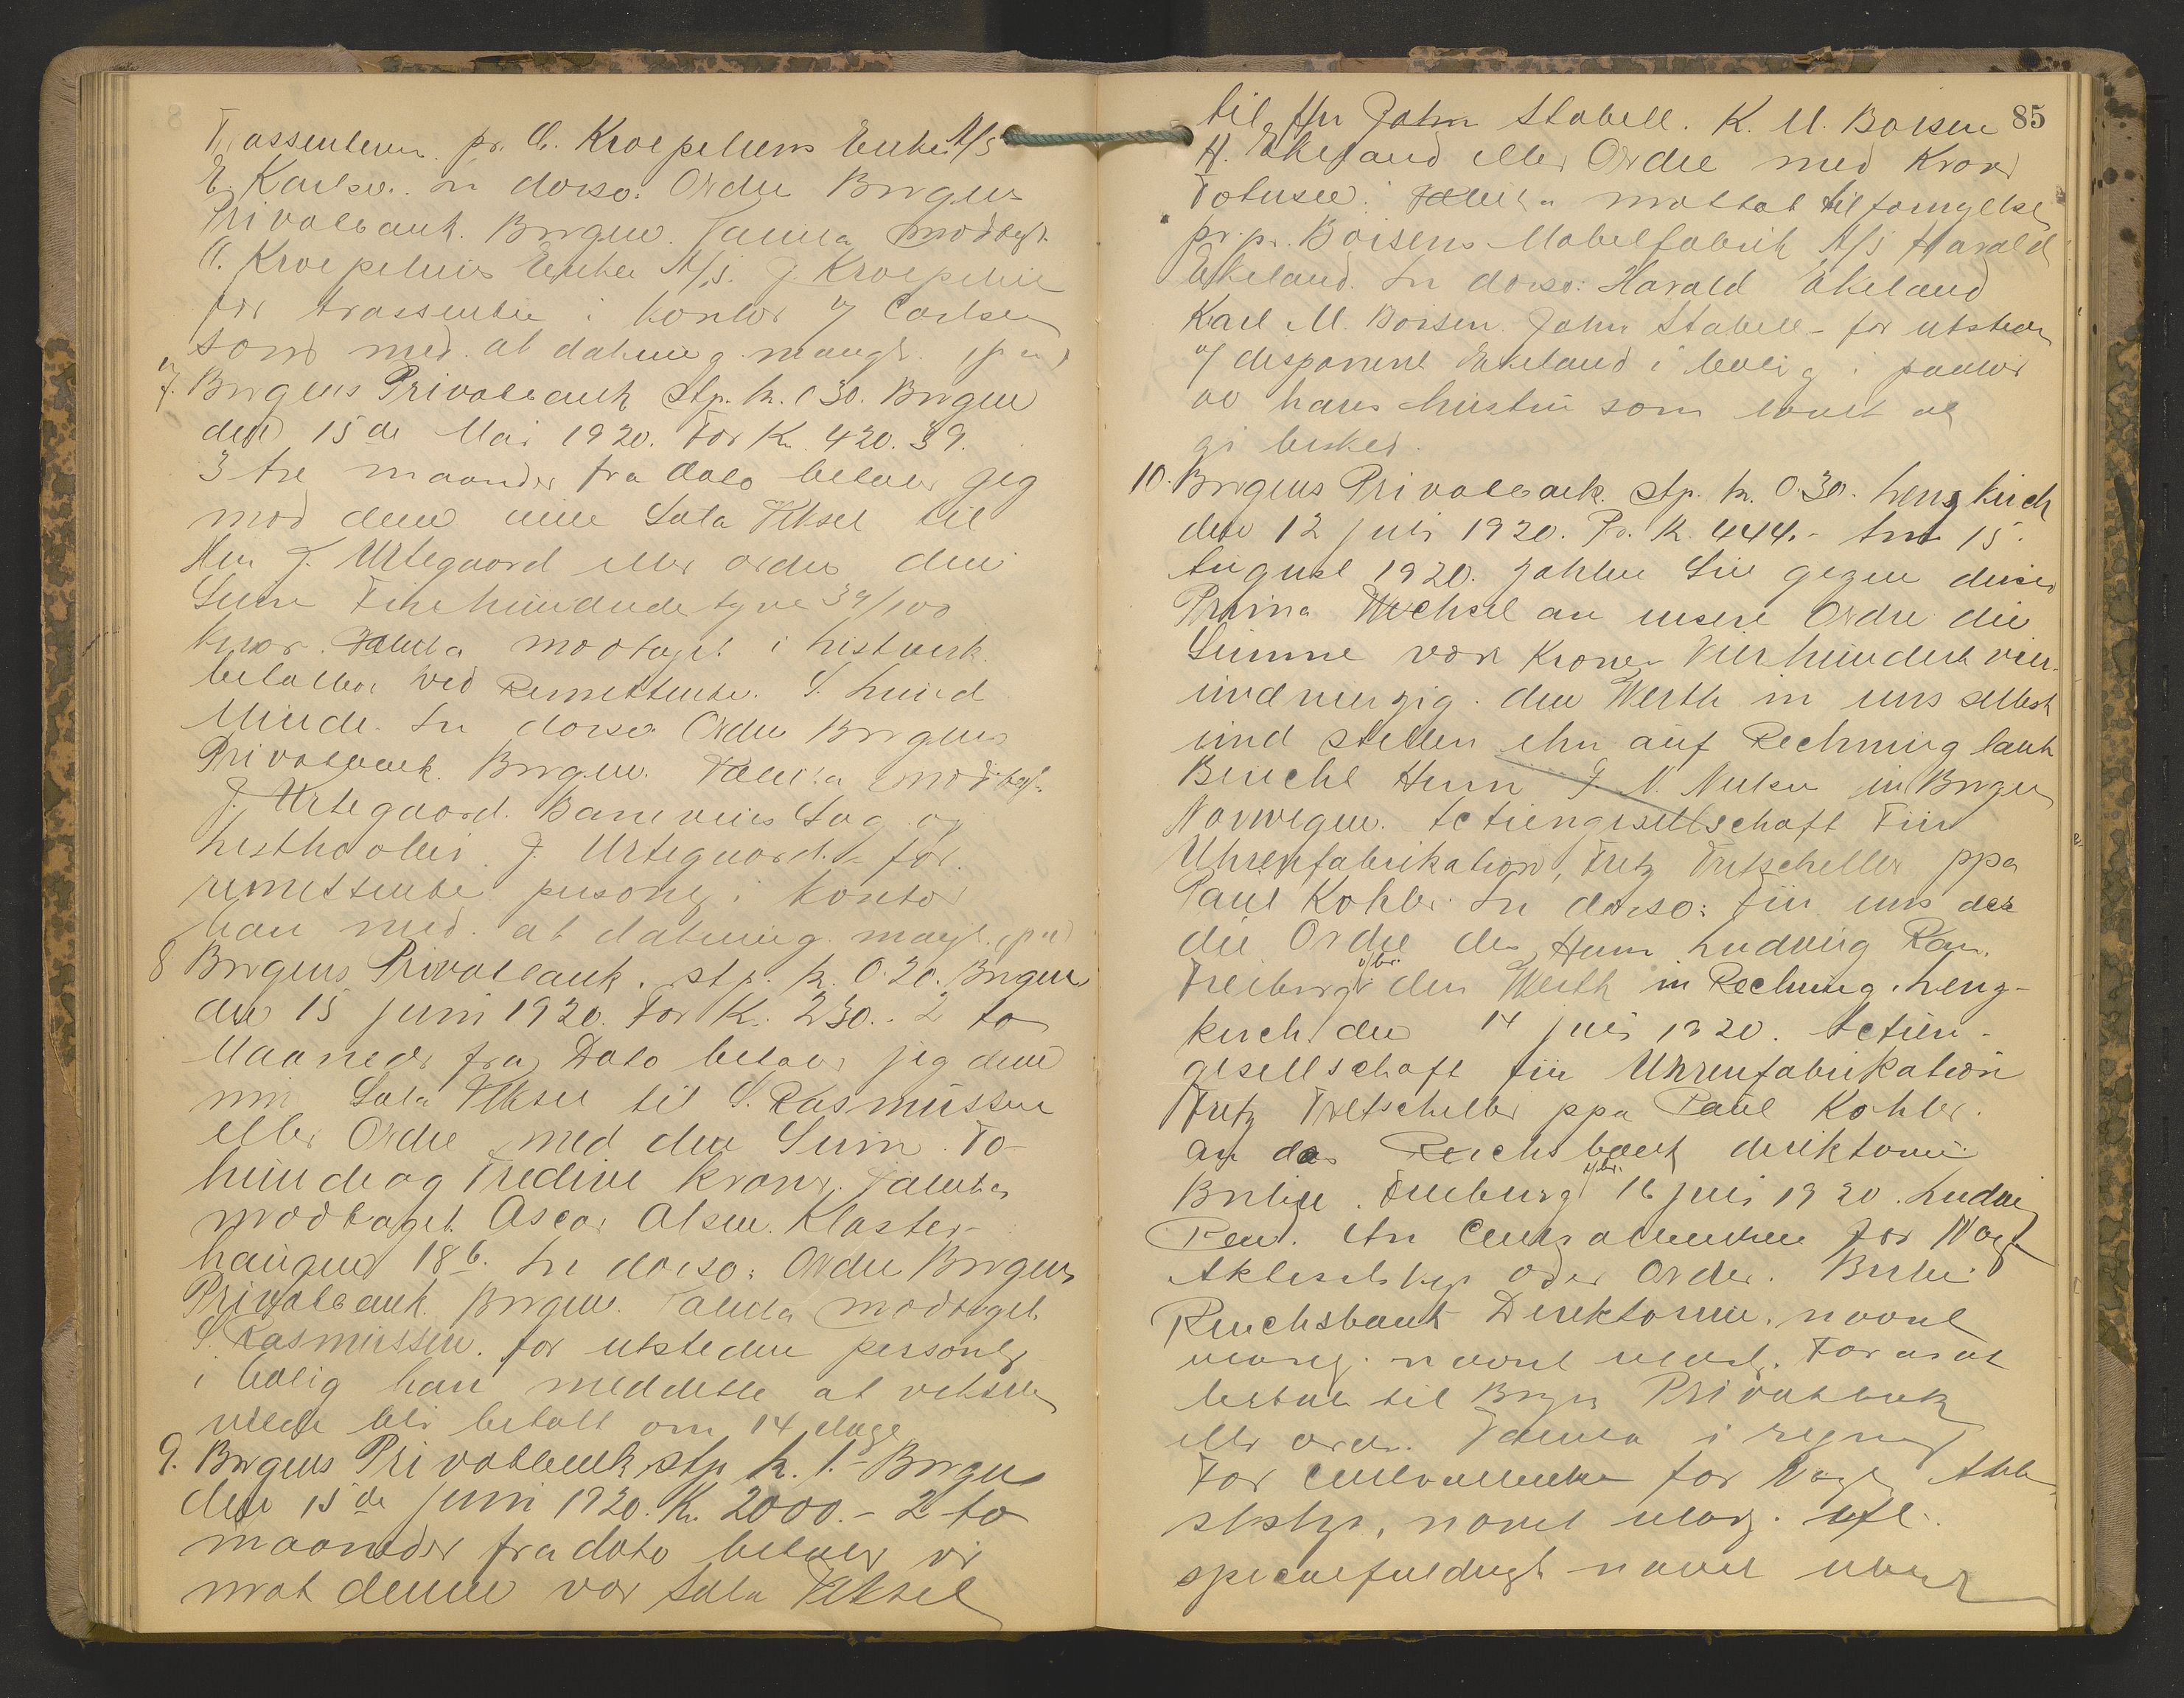 Trassenten. pr. A. Kroepeliens Enke A/S
E. Karlsen. In dorso. Ordre Bergens
Privatbank. Bergen. Valuta modtagt.
A. Kroepeliens Enke A/S. J. Kroepelien
for trassenten i kontor v/ Carlsen
som med. at dækning mangl.
7. Bergens Privatbank Stp. kr. 0 30. Bergen
den 15de Mai 1920. For Kr. 420.39.
3 tre maander fra dato betaler jeg
mod denne min Sola Veksel til
Herr J. Urtegaard eller ordre den
Sum Firehundrede tyve 39/100
kroner. Valuta modtaget i
betalbar ved Remittenten. S. Lund
Minde. In dorso Ordre Bergens
Privatbank. Bergen. Valuta modtagt.
J. Urtegaard. Sag og
J. Urtegaard. - for
remittenten personlig i kontor
han med. at dækning. mangl.
8 Bergens Privatbank. stp. kr. 0.20. Bergen
den 15 juni 1920. For Kr. 230.- 2 to
Maaneder fra Dato betaler jeg denne
min Sola Veksel til S. Rasmussen
eller Ordre med den Sum To-
hundrog Tredive kroner. Valuta
modtaget Oscar Olsen. Kloster-
haugen 18b. In dorso: Ordre Bergens
Privatbank. Bergen. Valuta modtaget
S. Rasmussen. for utstederen personlig
i bolig han meddelte at vekslen
vilde bli betalt om 14 dage
9. Bergens Privatbank stp kr. 1.- Bergen
den 15de juni 1920. Kr. 2000.- 2 to
maaneder fra dato betaler vi
mot denne vor Sola Veksel
85
til Hr John Stabell. K. M. Boisen
H. Ekeland eller Ordre med Kroner
Totusen. Valuta mottat til fornyelse
pr. pr. Boisens Møbelfabrik A/S Harald
Ekeland. In dorso: Harald Ekeland
Karl M. Boisen. John Stabell - for utstederen
v/ disponent Ekeland i bolig i
av hans hustru som
gi besked.
10. Bergens Privatbank. Stp. kr. 0.30. Lenzkirch
den 12 juli 1920. Pr. K. 444.- Am 15.
August 1920. zahlen Sie gegen diesen
Prima Wechsel an unsere Ordre die
Summe von Kronen Vierhundert vier-
undvierzig. den Werth in uns selbst
und stellen ihn auf Rechnung laut
Bericht Herrn J. N. in Bergen
Norwegen. Actiengesellschaft Für
Uhrenfabrikation, Fritz Tritscheller ppa
Paul Kohler. In dorso: Für uns
die Ordre des Herrn Ludwig Rau.
Freiburg i/br. den Werth in Rechnung. Lenz-
kirch den 14 juli 1920. Actien-
gesellschaft für Uhrenfabrikation
Fritz Tritscheller ppa Paul Kohler.
an das Reichsbank direktorium
Berlin. Freiburg i/br. 16 juli 1920. Ludwig
Rau. An Centralbanken for Norge
Aktieselskap oder Order. Berlin
Reichsbank Direktorium. navnet
navnet For
betal til Bergens Privatbank
eller ordre. Valuta i regning
For Centralbanken for Norge Aktie-
selskap, navnet
specialfuldmagt navnet